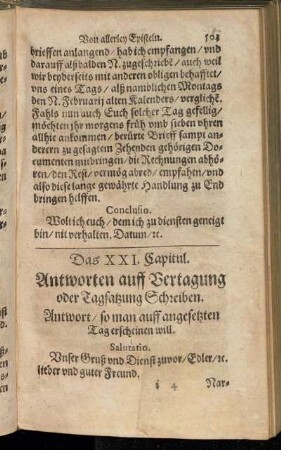 Von allerley Episteln. 503
brieffen anlangend/ hab ich empfangen/ vnd
darauff alßbalden N. zugeschriebẽ/ auch weil
wir beyderseits mit anderen obligen behafftet/
vns eines Tags/ alß namblichen Montags
den N. Februarij alten Kalenders/ verglichẽ.
Fahls nun auch Euch solcher Tag gefellig/
möchten jhr morgens früh vmb sieben vhren
allhie ankommen/ berürte Brieff sampt an-
derern zu gesagtem Zehenden gehörigen Do-
cumenten mitbringen/ die Rechnungen abhö-
ren/ den Rest/ vermög abred/ empfahen/ vnd
also diese lange gewährte Handlung zu End
bringen helffen.
Conclusio.
Wolt ich euch/ dem ich zu diensten geneigt
bin/ nit verhalten. Datum/ ꝛc.
Das XXI. Capitul.
Antworten auff Vertagung
oder Tagsatzung Schreiben.
Antwort/ so man auff angesetzten
Tag erscheinen will.
Salutatio.
Vnser Gruß vnd Dienst zuvor/ Edler/ ꝛc.
lieber vnd guter Freund.
i 4 Nar-